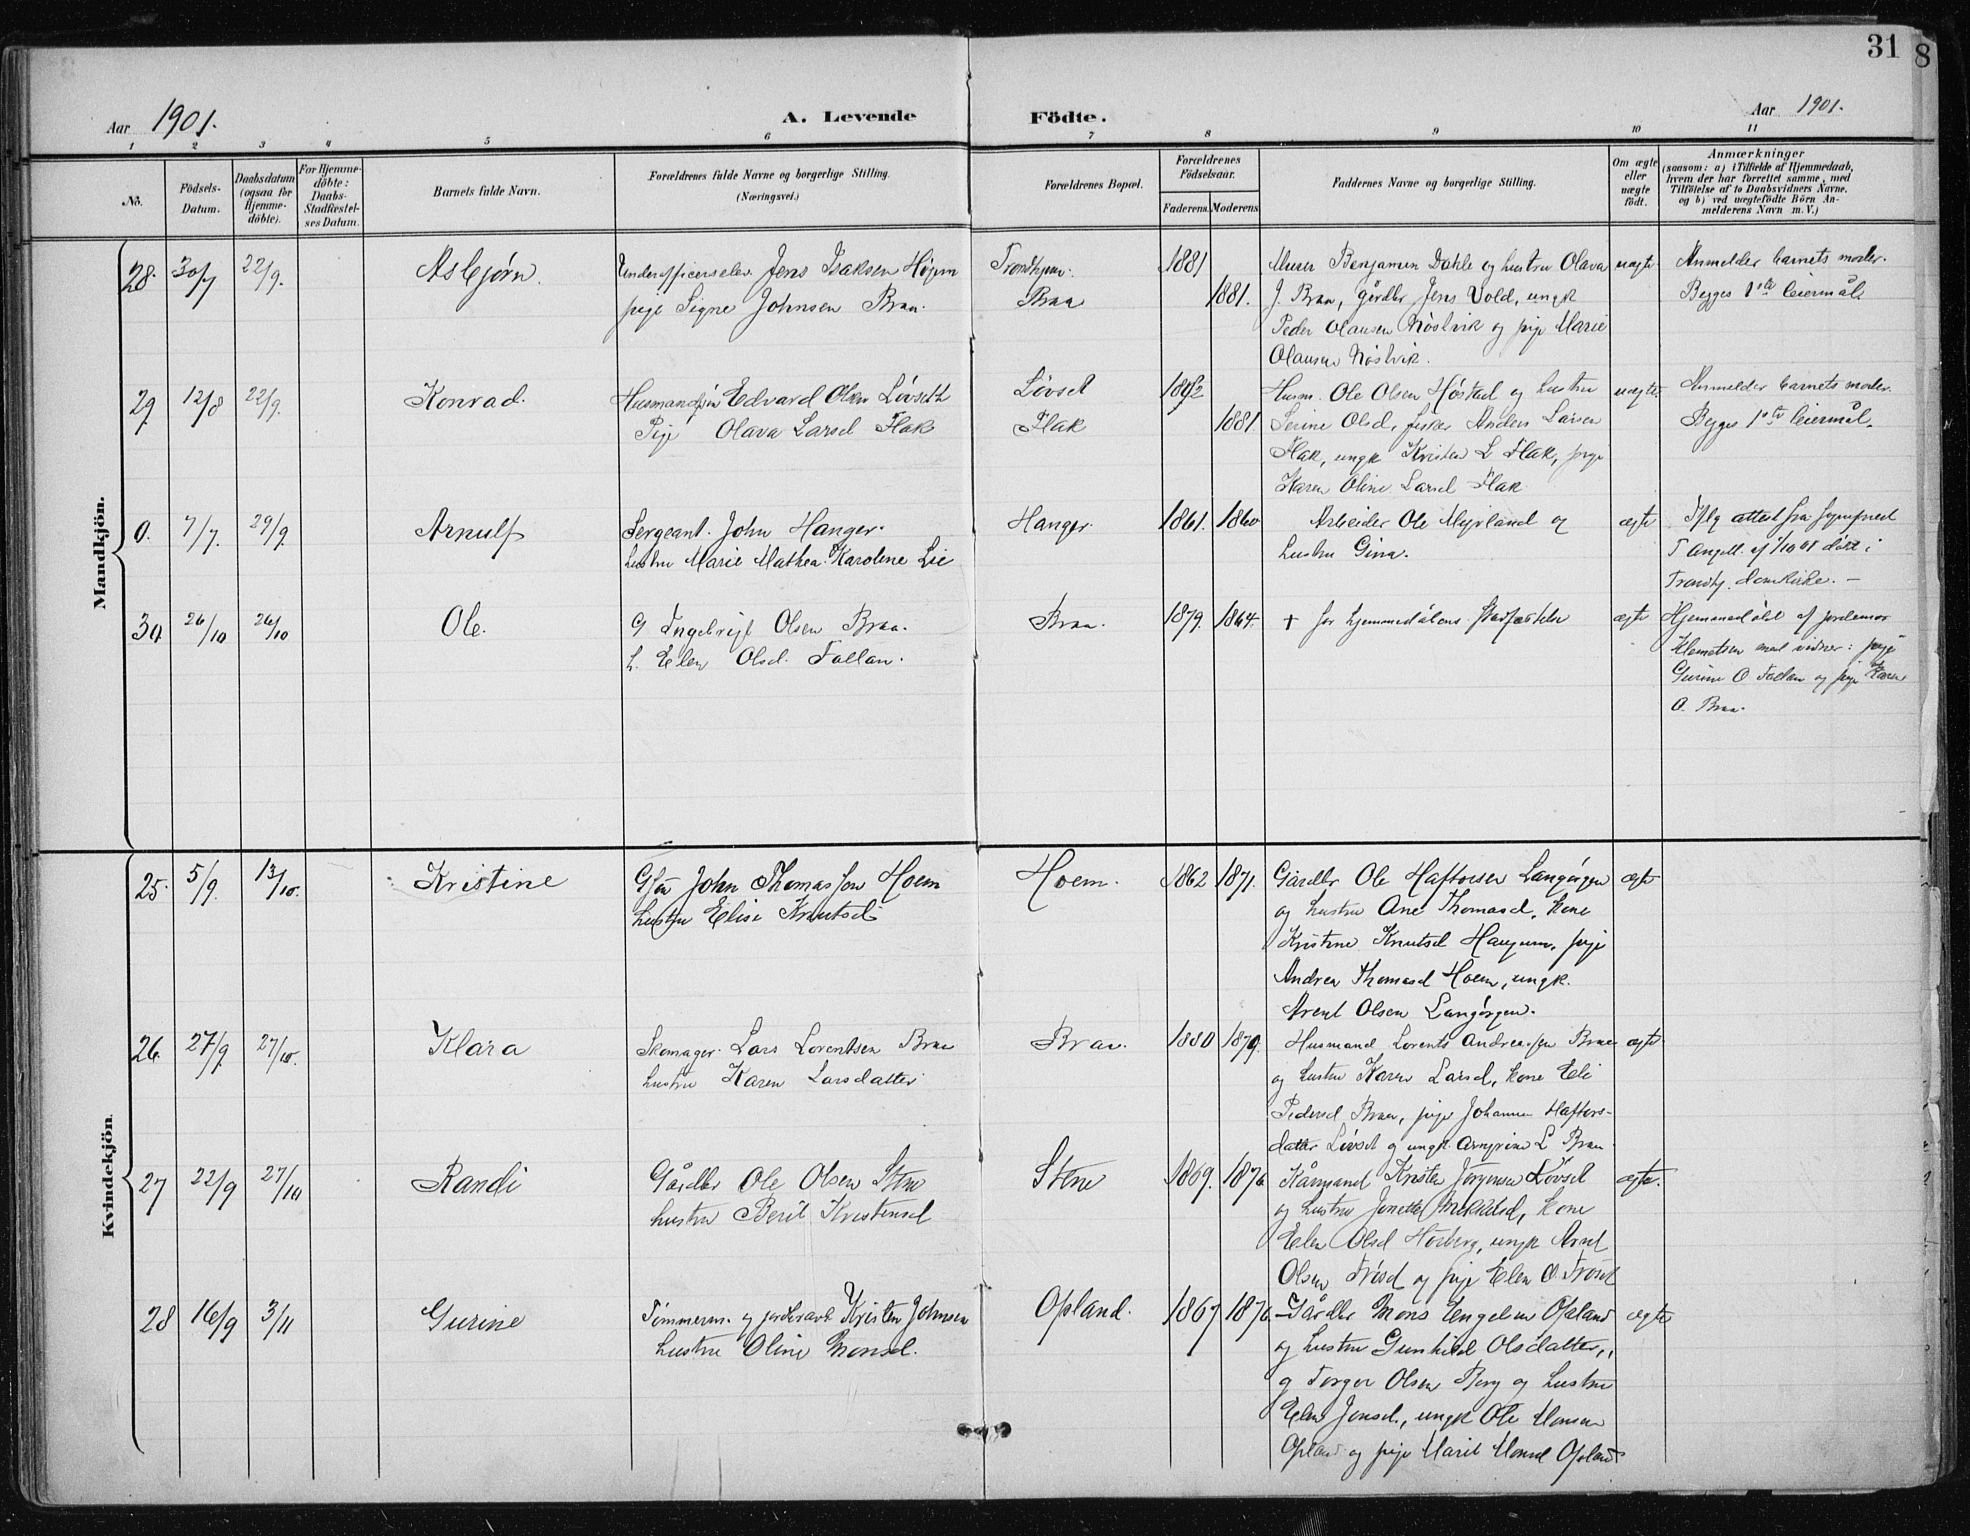 31
8
Aar 1901.
A. Levende Födte.
Aar 1901.
1 2 3 4 5 6 7 8 9 10 11
No.
Födsels-Datum.
Daabsdatum (ogsaa for Hjemme-döbte).
For Hjemme-döbte: Daabs-Stadfæstel-ses Datum.
Barnets fulde Navn.
Forældrenes fulde Navne og borgerlige Stilling.
(Næringsvei.)
Forældrenes Bopæl.
Forældrenes Födselsaar.
Faderens. Moderens.
Faddernes Navne og borgerlige Stilling.
Om ægte eller uægte födt.
Anmærkninger
(saasom: a) i Tilfælde af Hjemmedaab,
hvem der har forrettet samme, med
Tilföielse af to Daabsvidners Navne.
og b) ved uægtefödte Börn An-
melderens Navn m. V.)
Mandkjön.
28. 30/7 22/9. Asbjørn. Underofficerselev Jens Isaksen Højem Trondhjem. 1881 Murer Benjamin Dahle og hustru Olava uægte Anmelder barnets moder.
pige Signe Johnsen Braa. Braa 1881. J. Braa, gårdbr Jens Vold, ungk Begges 1ste leiermål
Peder Olausen Nøstvik og pige Marie
Olausen Nøstvik.
29. 12/8 22/9. Konrad. Husmandssön Edvard Olsen Lövseth Lövset 1882 Husm. Ole Olsen Höstad og hustru uægte. Anmelder barnets moder.
Pige Olava Larsd Flak Flak 1881 Serine Olsd, fisker Anders Larsen Begges 1ste leiermål.
Flak, ungk Kristen L Flak, pige
Karen Oline Larsd Flak.
0. 7/7. 29/9. Arnulf Sergeant. John Hanger. Hanger. 1861. 1860 Arbeider Ole Myrland og ægte Iflg attest fra
hustru Marie Mathea Karoline Lie hustru Gina. døbt i
Trondhj. domkirke. —
30 26/10 26/10 Ole. G Ingebrigt Olsen Braa. Braa. 1879. 1864. + før hjemmedåbens Stadfæstelse ægte Hjemmedöbt af jordemor
h. Elen Olsd. Fallan. Klemetsen med vidner: pige
Gurine O Fallan og pige Karen
O. Braa.
Kvindekjön.
25. 5/9. 13/10. Kristine John Thomassen Hoem Hoem. 1862 1871. Gårdbr Ole Haftorsen Langörgen ægte
hustru Elise Knutsd og hustru Ane Thomasd, kone
Kristine Knutsd Haugum, pige
Andrea Thomasd Hoem, ungk.
Arent Olsen Langörgen.
26. 27/9. 27/10. Klara Skomager. Lars Lorentsen Braa Braa. 1880 1879. Husmand Lorents Andreassen Braa ægte
hustru Karen Larsdatter og hustru Karen Larsd, kone Eli
Pedersd Braa, pige Johanna Haftors-
datter Lövset og ungk. L Braa
27 22/9 27/10 Randi Gårdbr Ole Olsen Stene Stene 1869. 1876 Kårmand Kristen Jörgensen Lövset ægte.
hustru Berit Kristensd og hustru Jonetta Mikkelsd, kone
Elen Olsd Horberg, ungk Arnt
Olsen Fröset og pige Elen O. Fröset
28 16/9 3/11 Gurine Tömmerm. og Kristen Johnsen Opland. 1867 1876. Gårdbr Mons Engelsen Opland ægte
hustru Oline Monsd. og hustru Gunhild Olsdatter,
g Torger Olsen Berg og hustru
Elen Jensd., ungk Ole Monsen
Opland og pige Marit Monsd Opland